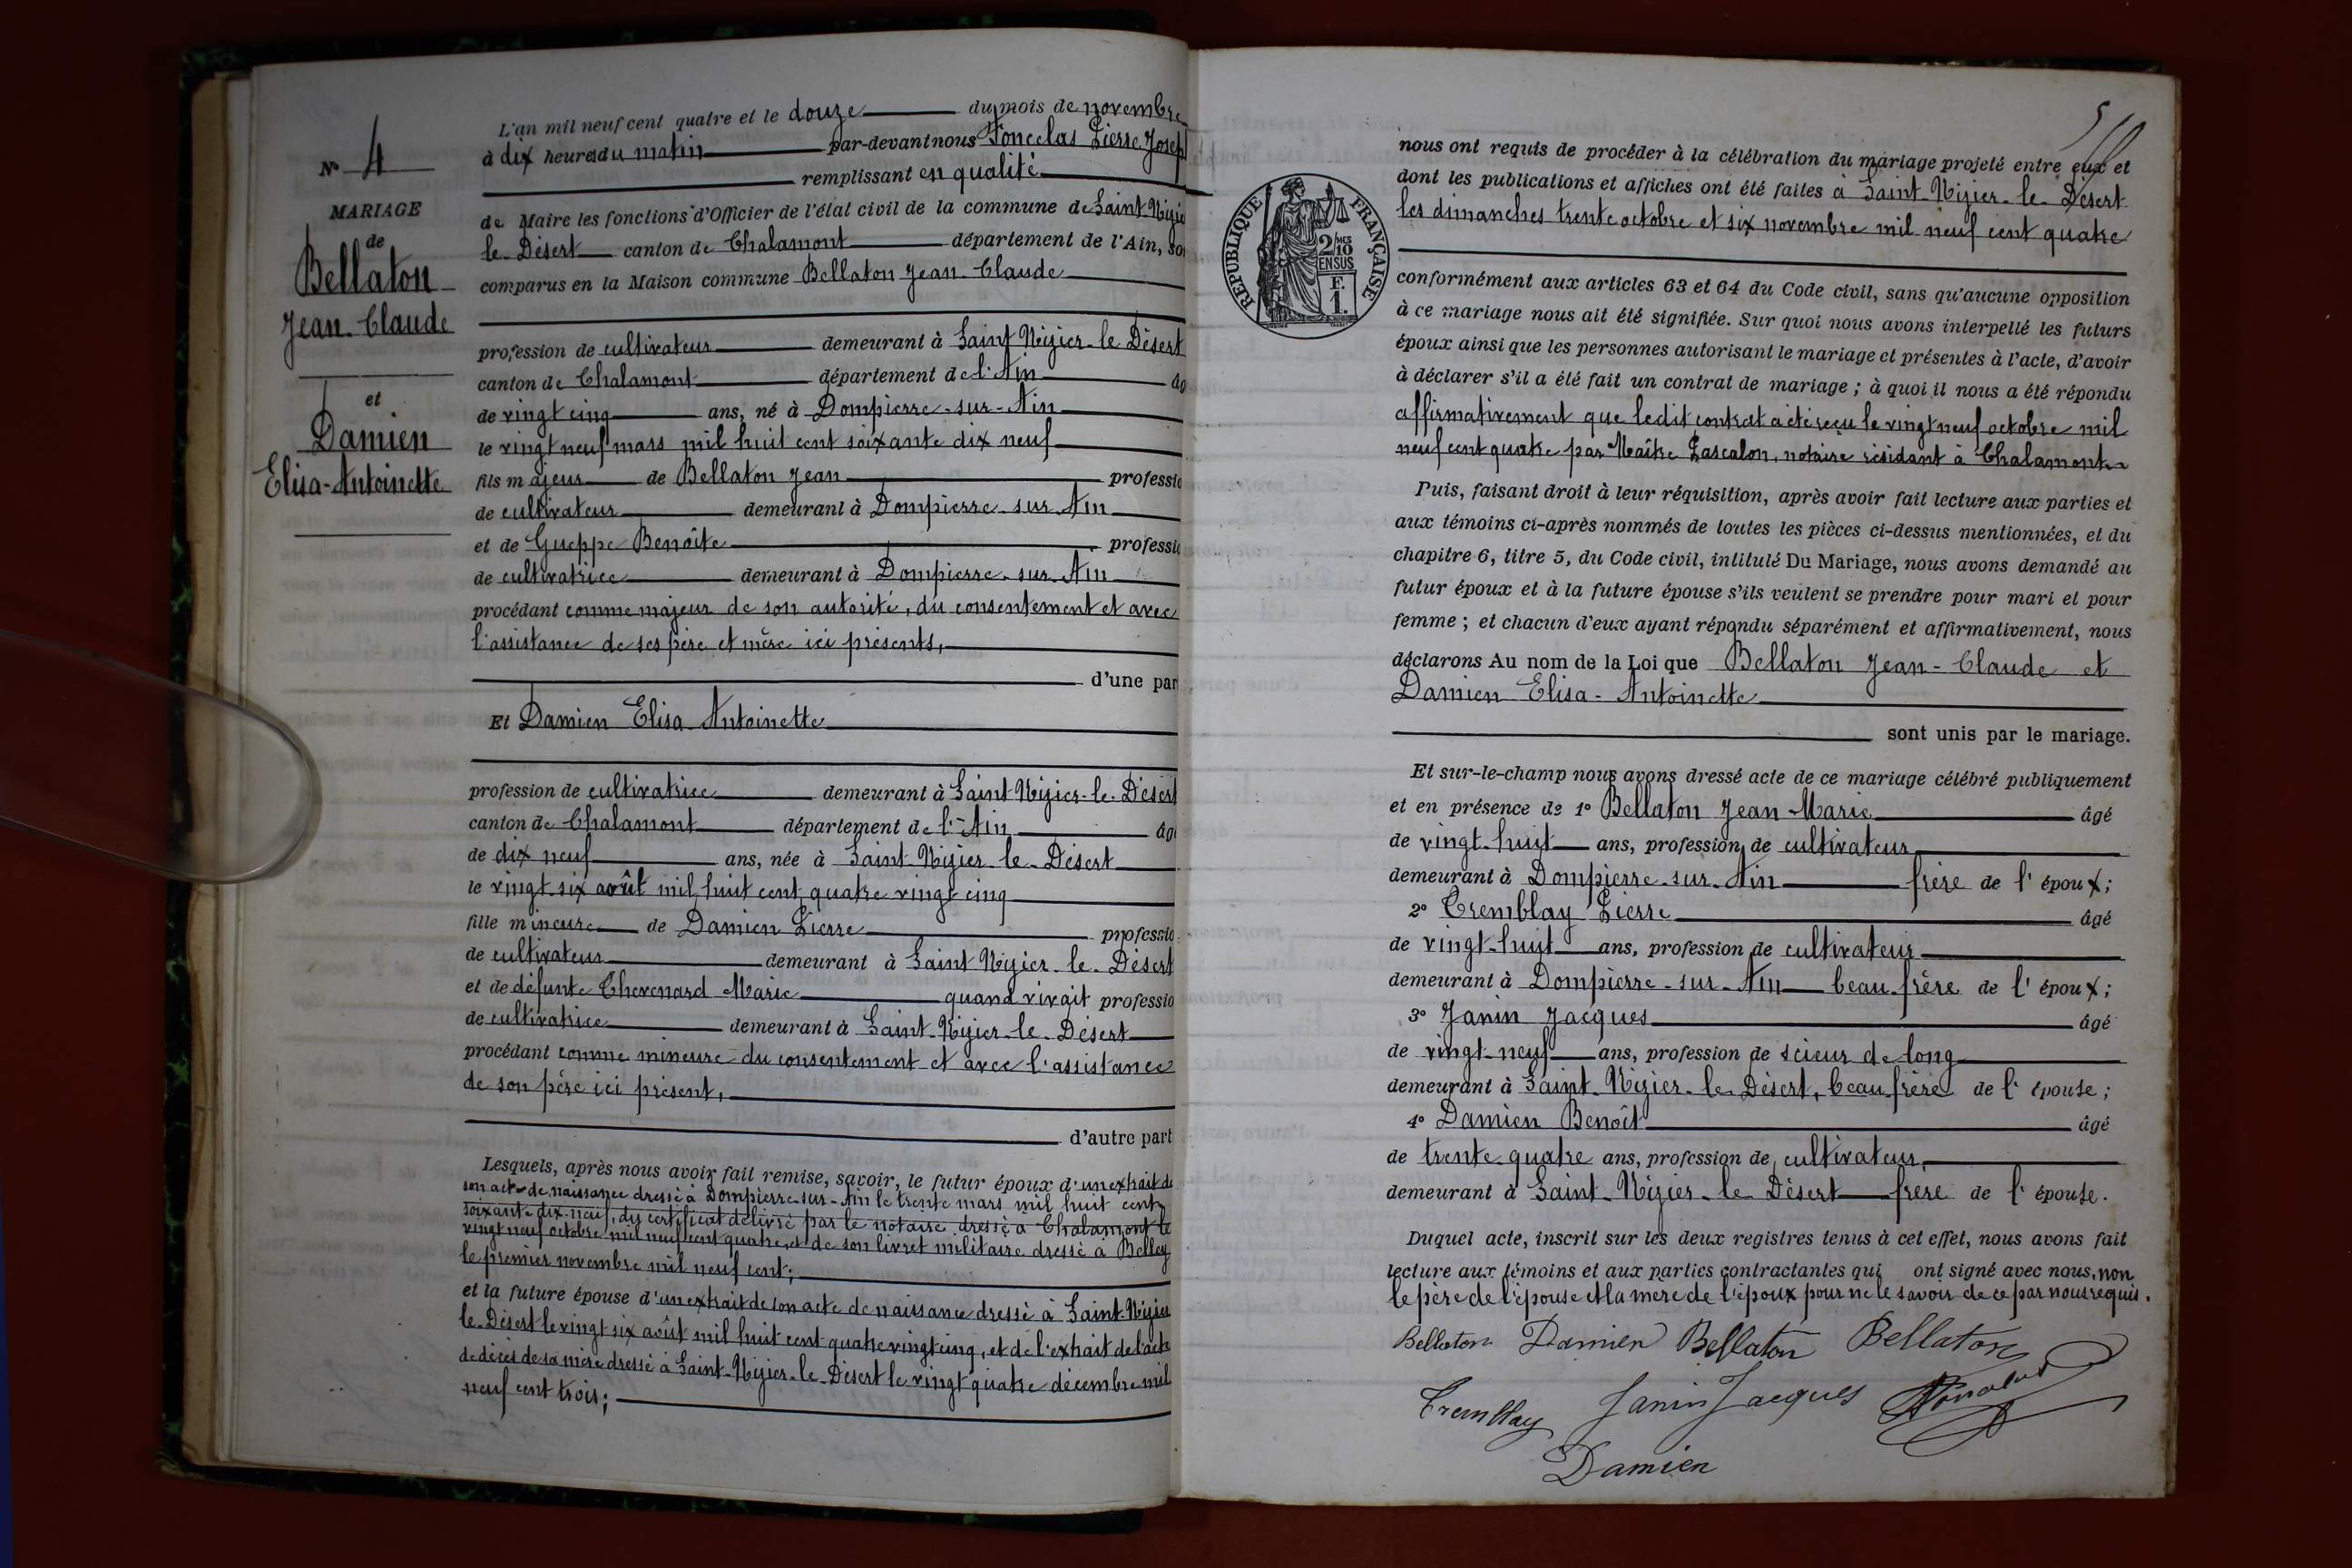 N° 4
MARIAGE
de
Bellaton
Jean-Claude
et
Damien
Elisa-Antoinette
L'an mil neuf cent quatre et le douze du mois de novembre
à dix heures du matin par-devant nous Joseph
remplissant en qualité
de Maire les fonctions d'Officier de l'état civil de la commune de Saint-Nizier
le-Désert canton de Chalamont département de l'Ain, son
comparus en la Maison commune Bellaton Jean-Claude
profession de cultivateur demeurant à Saint-Nizier-le-Désert
canton de Chalamont département de l'Ain âg
de vingt cinq ans, né à Dompierre-sur-Ain
le vingt neuf mars mil huit cent soixante dix neuf
fils majeur de Bellaton Jean professio
de cultivateur demeurant à Dompierre-sur-Ain
et de Gueppe Benoîte professio
de cultivatrice demeurant à Dompierre-sur-Ain
procédant comme majeur de son autorité, du consentement et avec
l'assistance de ses père et mère ici présents,
d'une part
Et Damien Elisa-Antoinette
profession de cultivatrice demeurant à Saint-Nizier-le-Désert
canton de Chalamont département de l'Ain âgé
de dix neuf ans, née à Saint-Nizier-le-Désert
le vingt-six août mil huit cent quatre vingt cinq
fille mineure de Damien Pierre professio
de cultivateur demeurant à Saint-Nizier-le-Désert
et de défunte Chevenard Marie quand vivait professio
de cultivatrice demeurant à Saint-Nizier-le-Désert
procédant comme mineure du consentement et avec l'assistance
de son père ici présent,
d'autre part
Lesquels, après nous avoir fait remise, savoir, le futur époux d'un extrait de
son acte de naissance dressé à Dompierre-sur-Ain le trente mars mil huit cent
soixante-dix-neuf, du certificat délivré par le notaire dressé à Chalamont le
vingt neuf octobre mil neuf cent quatre, et de son livret militaire dressé à Belley
le premier novembre mil neuf cent;
et la future épouse d'un extrait de son acte de naissance dressé à Saint-Nizier
le-Désert le vingt six août mil huit cent quatre vingt cinq, et de l'extrait de l'acte
de décès de sa mère dressé à Saint-Nizier-le-Désert le vingt quatre décembre mil
neuf cent trois;
nous ont requis de procéder à la célébration du mariage projeté entre eux et
dont les publications et affiches ont été faites à Saint-Nizier-le-Désert
les dimanches trente octobre et six novembre mil neuf cent quatre
RÉPUBLIQUE FRANÇAISE
2/10 MES
EN SUS
F.
1.
conformément aux articles 63 et 64 du Code civil, sans qu'aucune opposition
à ce mariage nous ait été signifiée. Sur quoi nous avons interpellé les futurs
époux ainsi que les personnes autorisant le mariage et présentes à l'acte, d'avoir
à déclarer s'il a été fait un contrat de mariage ; à quoi il nous a été répondu
affirmativement que ledit contrat a été reçu le vingt neuf octobre mil
neuf cent quatre par Maître Lascalon, notaire résidant à Chalamont
Puis, faisant droit à leur réquisition, après avoir fait lecture aux parties et
aux témoins ci-après nommés de toutes les pièces ci-dessus mentionnées, et du
chapitre 6, titre 5, du Code civil, intitulé Du Mariage, nous avons demandé au
futur époux et à la future épouse s'ils veulent se prendre pour mari et pour
femme ; et chacun d'eux ayant répondu séparément et affirmativement, nous
déclarons Au nom de la Loi que Bellaton Jean-Claude et
Damien Elisa-Antoinette
sont unis par le mariage.
Et sur-le-champ nous avons dressé acte de ce mariage célébré publiquement
et en présence de 1° Bellaton Jean-Marie âgé
de vingt-huit ans, profession de cultivateur
demeurant à Dompierre-sur-Ain frère de l'époux;
2° Tremblay Pierre âgé
de vingt-huit ans, profession de cultivateur
demeurant à Dompierre-sur-Ain beau-frère de l'époux;
3° Janin Jacques âgé
de vingt-neuf ans, profession de scieur de long
demeurant à Saint-Nizier-le-Désert, beau-frère de l'épouse;
4° Damien Benoît âgé
de trente-quatre ans, profession de cultivateur,
demeurant à Saint-Nizier-le-Désert frère de l'épouse.
Duquel acte, inscrit sur les deux registres tenus à cet effet, nous avons fait
lecture aux témoins et aux parties contractantes qui ont signé avec nous, non
le père de l'épouse et la mère de l'époux pour ne le savoir de ce par nous requis.
Bellaton Damien Bellaton Bellaton
Tremblay Janin Jacques
Damien